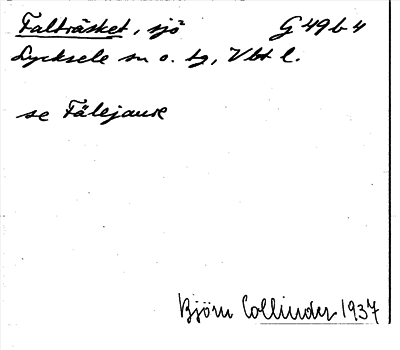 Falträsket, sjö G 49 b 4
Lycksele sn o. tg, Vbt l.
se Fälejaure
Björn Collinder 1937